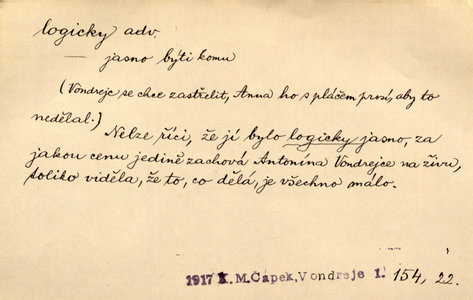 logicky adv.
— jasno býti komu
(Vondrejc se chce zastřelit, Anna ho s pláčem prosí, aby to
nedělal.)
Nelze říci, že jí bylo logicky jasno, za
jakou cenu jedině zachová Antonína Vondrejce na živu,
toliko viděla, že to, co dělá, je všechno málo.
1917 K. M. Čapek, Vondrejc I. 154, 22.